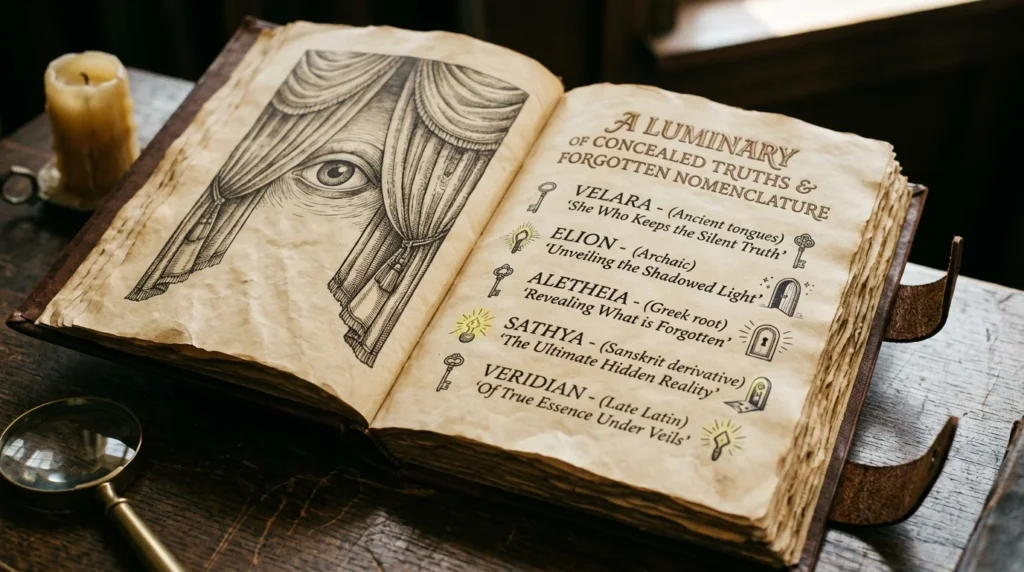 A LUMINARY
OF CONCEALED TRUTHS &
FORGOTTEN NOMENCLATURE
VELARA - (Ancient tongues)
'She Who Keeps the Silent Truth'
ELION - (Archaic)
'Unveiling the Shadowed Light'
ALETHEIA - (Greek root)
'Revealing What is Forgotten'
SATHYA - (Sanskrit derivative)
'The Ultimate Hidden Reality'
VERIDIAN - (Late Latin)
'Of True Essence Under Veils'